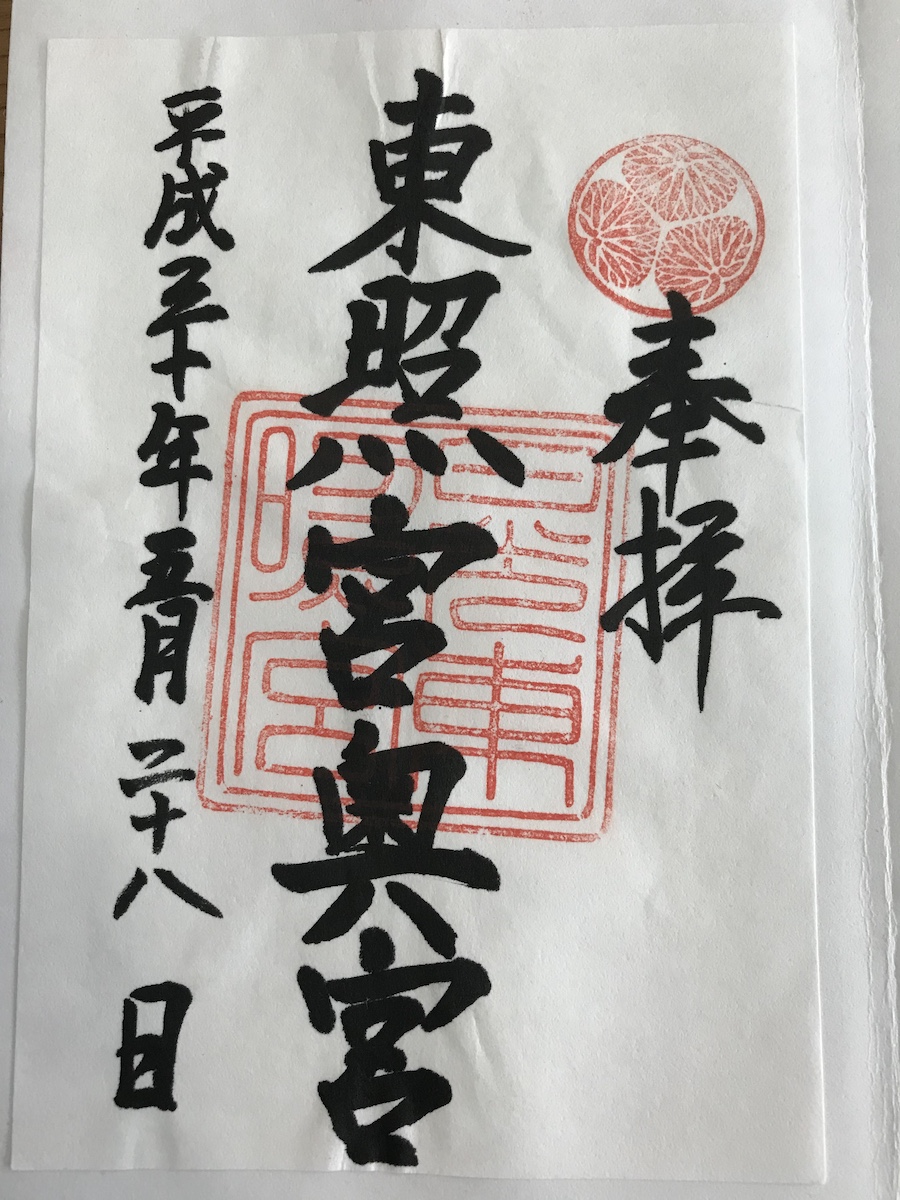 奉拝
東照宮奥宮
平成三十年五月二十八日